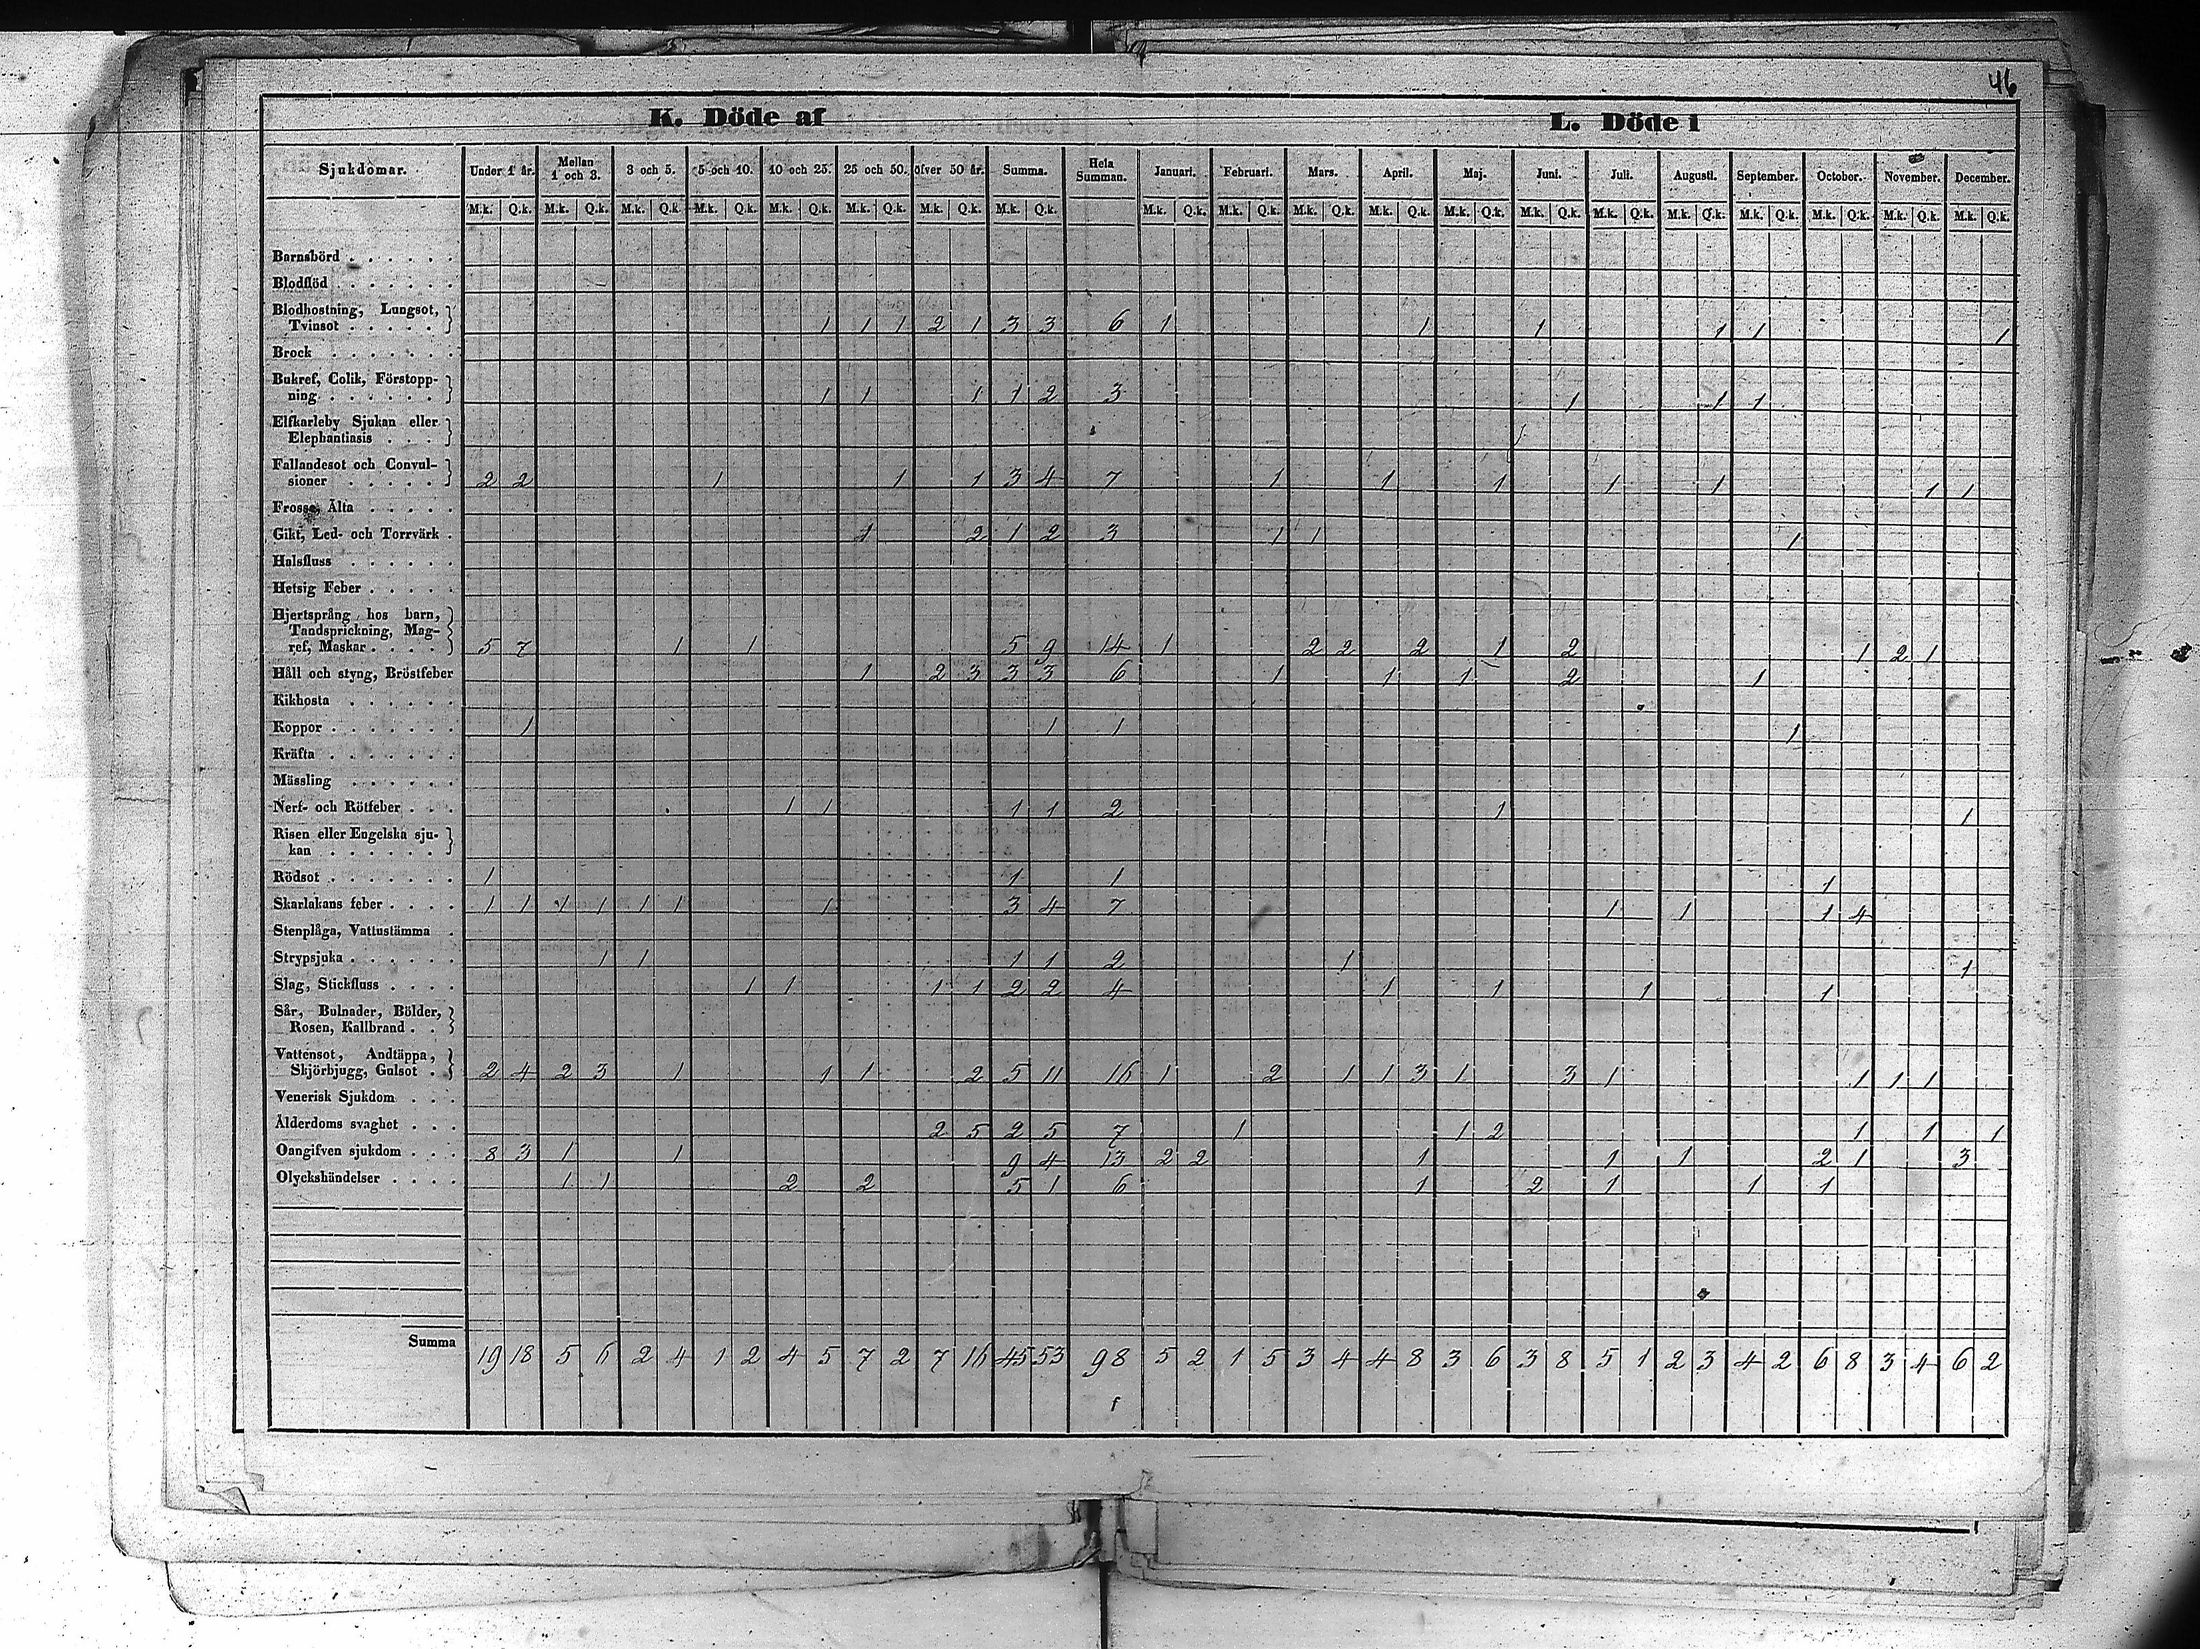 46
K. Döde af L. Döde i
Sjukdomar. Under 1 år. Mellan 1 och 3. 3 och 5. 5 och 10. 10 och 25. 25 och 50. öfver 50 år. Summa. Hela Summan. Januari. Februari. Mars. April. Maj. Juni. Juli. Augusti. September. October. November. December.
M.k. Q.k. M.k. Q.k. M.k. Q.k. M.k. Q.k. M.k. Q.k. M.k. Q.k. M.k. Q.k. M.k. Q.k. M.k. Q.k. M.k. Q.k. M.k. Q.k. M.k. Q.k. M.k. Q.k. M.k. Q.k. M.k. Q.k. M.k. Q.k. M.k. Q.k. M.k. Q.k. M.k. Q.k. M.k. Q.k.
Barnsbörd . . . . . .
Blodflöd . . . . . . .
Blodhostning, Lungsot,
Tvinsot . . . . . 1 1 1 2 1 3 3 6 1 1 1 1 1 1
Brock . . . . . . .
Bukref, Colik, Förstopp-
ning . . . . . . 1 1 1 1 2 3 1 1 1
Elfkarleby Sjukan eller
Elephantiasis . . . .
Fallandesot och Convul-
sioner . . . . . 2 2 1 1 1 3 4 7 1 1 1 1 1 1 1
Frossa, Älta . . . . .
Gikt, Led- och Torrvärk . 1 2 1 2 3 1 1 1
Halsfluss . . . . . .
Hetsig Feber . . . . .
Hjertsprång hos barn,
Tandsprickning, Mag-
ref, Maskar . . . . 5 7 1 1 5 9 14 1 2 2 2 1 2 1 2 1
Håll och styng, Bröstfeber 1 2 3 3 3 6 1 1 1 2 1
Kikhosta . . . . . .
Koppor . . . . . . . 1 1 1 1
Kräfta . . . . . . .
Mässling . . . . . .
Nerf- och Rötfeber . . . 1 1 1 1 2 1 1
Risen eller Engelska sju-
kan . . . . . .
Rödsot . . . . . . . 1 1 1 1
Skarlakans feber . . . . 1 1 1 1 1 1 1 3 4 7 1 1 1 4
Stenplåga, Vattustämma .
Strypsjuka . . . . . . 1 1 1 1 2 1 1
Slag, Stickfluss . . . . 1 1 1 1 2 2 4 1 1 1 1
Sår, Bulnader, Bölder,
Rosen, Kallbrand . .
Vattensot, Andtäppa,
Skjörbjugg, Gulsot . 2 4 2 3 1 1 1 2 5 11 16 1 2 1 1 3 1 3 1 1 1 1
Venerisk Sjukdom . . .
Ålderdoms svaghet . . . 2 5 2 5 7 1 1 2 1 1 1
Oangifven sjukdom . . . 8 3 1 1 9 4 13 2 2 1 1 1 2 1 3
Olyckshändelser . . . . 1 1 2 2 5 1 6 1 2 1 1 1
Summa 19 18 5 6 2 4 1 2 4 5 7 2 7 16 45 53 98 5 2 1 5 3 4 4 8 3 6 3 8 5 1 2 3 4 2 6 8 3 4 6 2